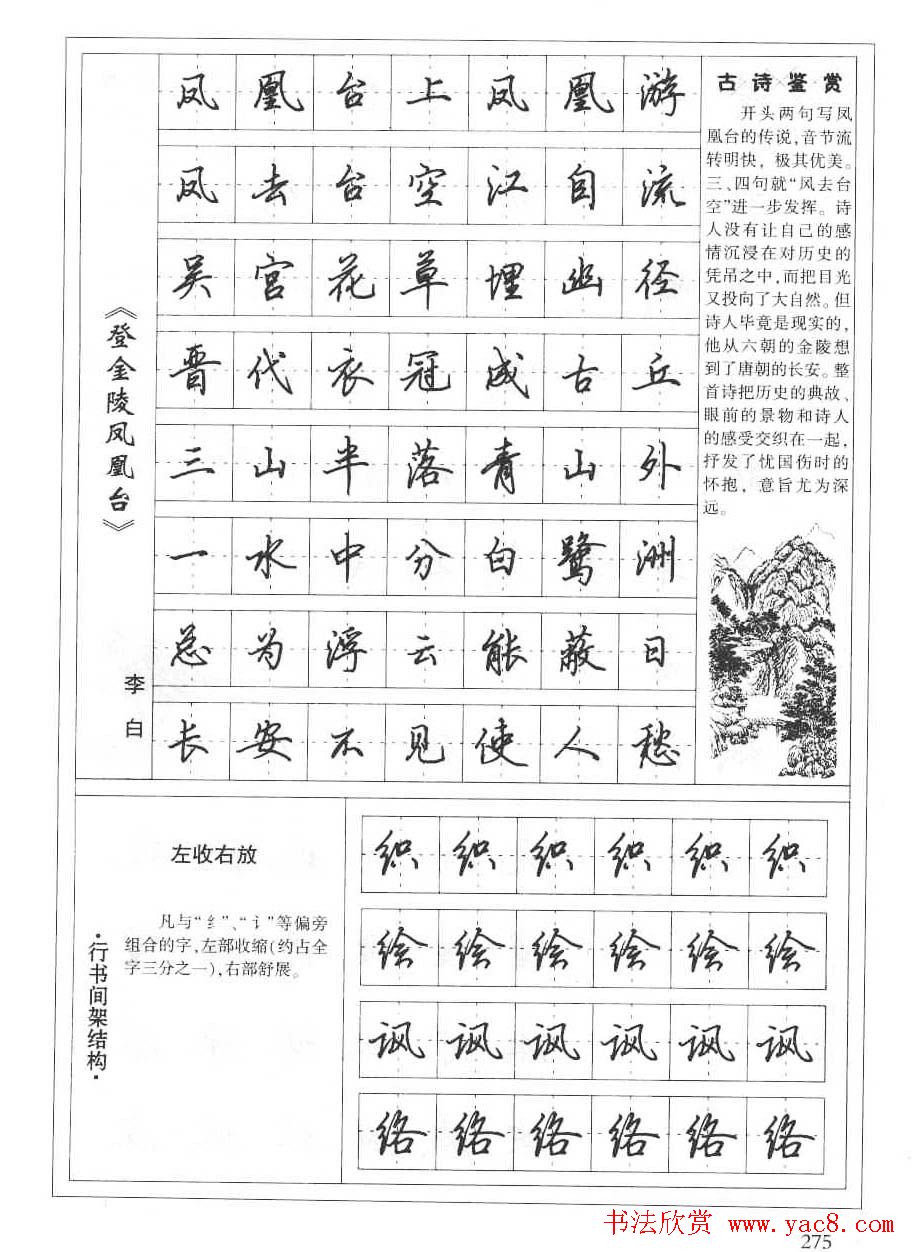 《登金陵凤凰台》
李白
凤凰台上凤凰游
凤去台空江自流
吴宫花草埋幽径
晋代衣冠成古丘
三山半落青山外
一水中分白鹭洲
总为浮云能蔽日
长安不见使人愁
古诗鉴赏
开头两句写凤
凰台的传说,音节流
转明快，极其优美。
三、四句就“凤去台
空”进一步发挥。诗
人没有让自己的感
情沉浸在对历史的
凭吊之中,而把目光
又投向了大自然。但
诗人毕竟是现实的,
他从六朝的金陵想
到了唐朝的长安。整
首诗把历史的典故、
眼前的景物和诗人
的感受交织在一起,
抒发了忧国伤时的
怀抱，意旨尤为深
远。
·行书间架结构·
左收右放
凡与“纟”、“讠”等偏旁
组合的字,左部收缩(约占全
字三分之一),右部舒展。
织织织织织织
绘绘绘绘绘绘
讽讽讽讽讽讽
络络络络络络
书法欣赏 www.yac8.com
275